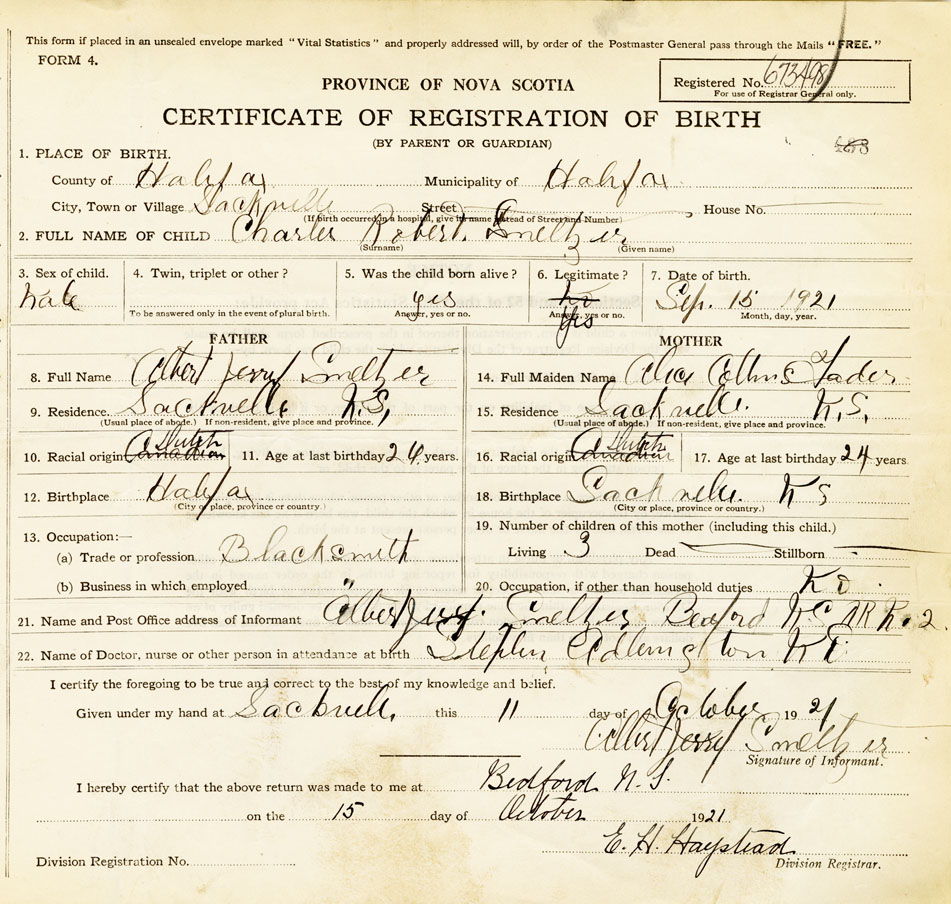 This form if placed in an unsealed envelope marked "Vital Statistics" and properly addressed will, by order of the Postmaster General pass through the Mails "FREE."
FORM 4.
Registered No. 673498
For use of Registrar General only.
PROVINCE OF NOVA SCOTIA
CERTIFICATE OF REGISTRATION OF BIRTH
(BY PARENT OR GUARDIAN)
1. PLACE OF BIRTH.
County of Halifax Municipality of Halifax
City, Town or Village Sackville Street House No.
(If birth occurred in a hospital, give its name instead of Street and Number)
2. FULL NAME OF CHILD Charles Robert Smeltzer
(Surname) (Given name)
3. Sex of child. 4. Twin, triplet or other? 5. Was the child born alive? 6. Legitimate? 7. Date of birth.
Male yes No Sep. 15 1921
To be answered only in the event of plural birth. Answer, yes or no. Answer, yes or no. Month, day, year.
Yes
FATHER MOTHER
8. Full Name Albert Jerry Smeltzer 14. Full Maiden Name Alice Collins Fader
9. Residence. Sackville N.S. 15. Residence Sackville. N.S.
(Usual place of abode.) If non-resident, give place and province. (Usual place of abode.) If non-resident, give place and province.
10. Racial origin Canadian Dutch 11. Age at last birthday 26 years. 16. Racial origin Canadian Dutch 17. Age at last birthday 24 years
12. Birthplace Halifax 18. Birthplace Sackville. N S
(City or place, province or country.) (City or place, province or country.)
19. Number of children of this mother (including this child.)
13. Occupation:—
(a) Trade or profession Blacksmith Living 3 Dead Stillborn
(b) Business in which employed " 20. Occupation, if other than household duties No.
21. Name and Post Office address of Informant Albert Jerry Smeltzer Bedford N.S. RR No. 2.
22. Name of Doctor, nurse or other person in attendance at birth Stephen Edlington
I certify the foregoing to be true and correct to the best of my knowledge and belief.
Given under my hand at Sackville, this 11 day of October 1921
Albert Jerry Smeltzer
Signature of Informant.
I hereby certify that the above return was made to me at Bedford N.S.
on the 15 day of October 1921
E. H. Haystead
Division Registration No. Division Registrar.